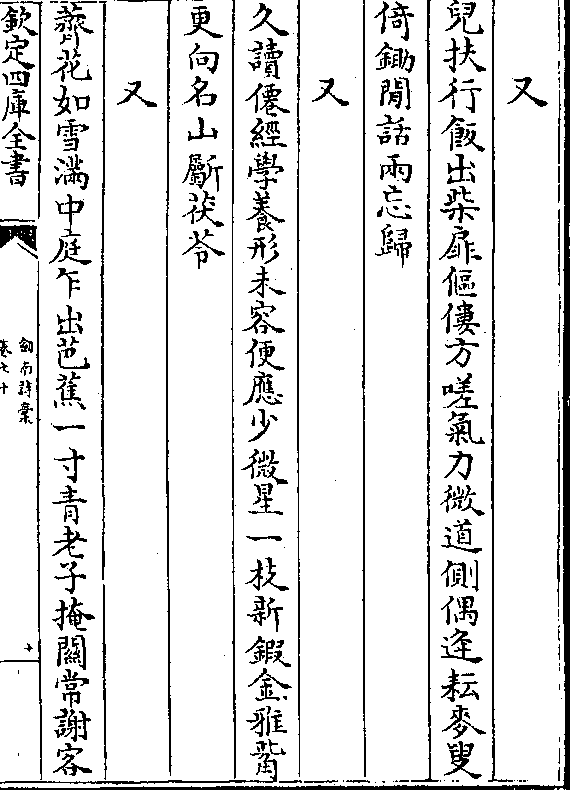 又
兒扶行飯出柴扉傴僂方嗟氣力微道側偶逢耘麥叟
倚鋤閒話兩忘歸
又
久讀僊經學養形未容便應少微星一枝新鍜金鴉觜
更向名山斸茯苓
又
薺花如雪滿中庭乍出芭蕉一寸青老子掩關常謝客
欽定四庫全書
劒南詩稾
卷七十